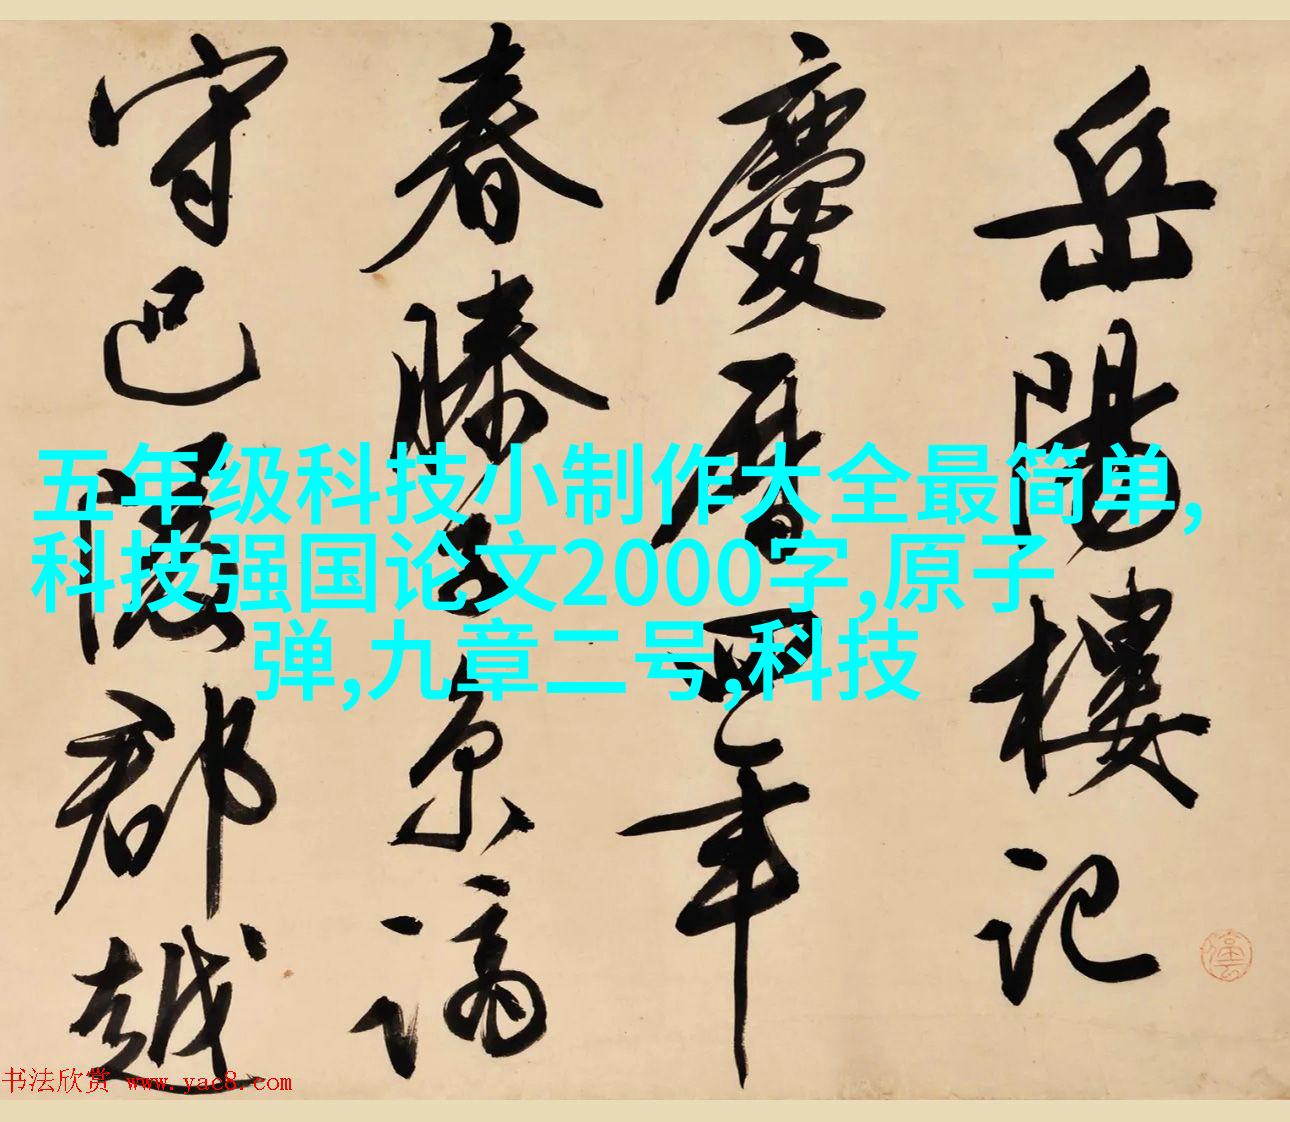 岳陽樓記
慶曆四年
春滕子京謫
守巴陵郡越
五年级科技小制作大全最简单,
科技强国论文2000字,原子
弹,九章二号,科技
书法欣赏 www.yac8.com